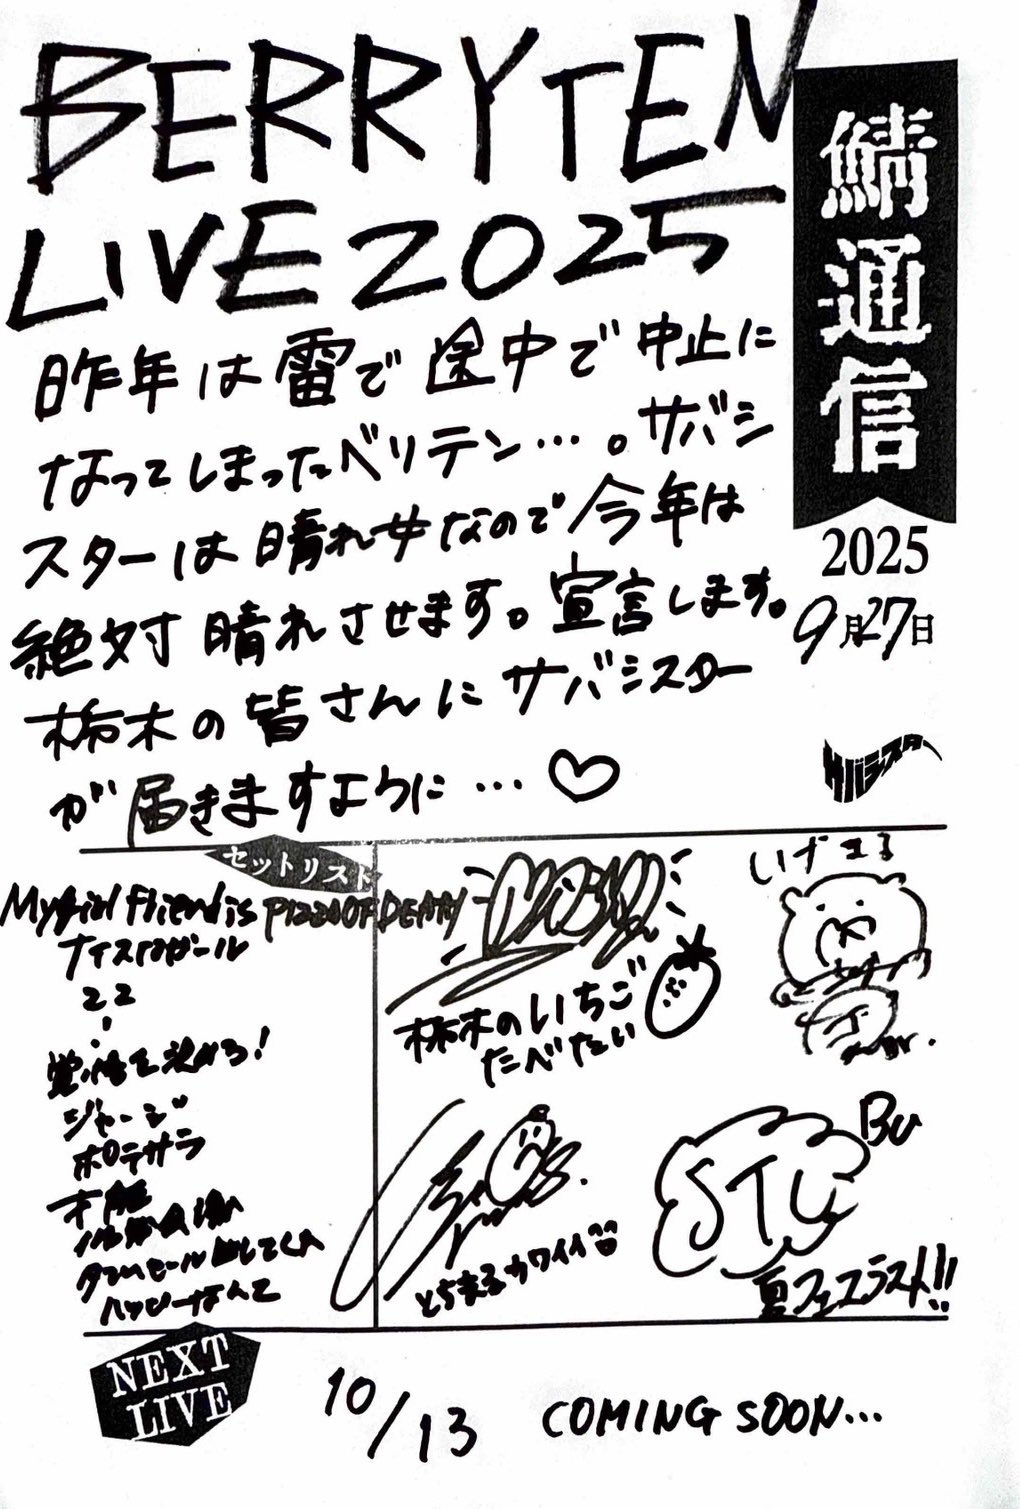 BERRYTEN
LIVE2025
鯖通信
2025
9月27日
サバシスター
昨年は雷で途中で中止に
なってしまったベリテン…。サバシ
スターは晴れ女なので今年は
絶対晴れさせます。宣言します。
栃木の皆さんにサバシスター
が届きますように…♡
セットリスト
My Girl Friend is PIZZA OF DEATH
ナイスなガール
22
覚悟を決めろ!
ジャージ
ポテサラ
才能
タイムセール逃してくれ
ハッピーなんて
栃木のいちご
たべたい
いげまる
とちまるカワイイ
Bu
STU
夏フェスラスト!!
NEXT
LIVE
10/13 COMING SOON…